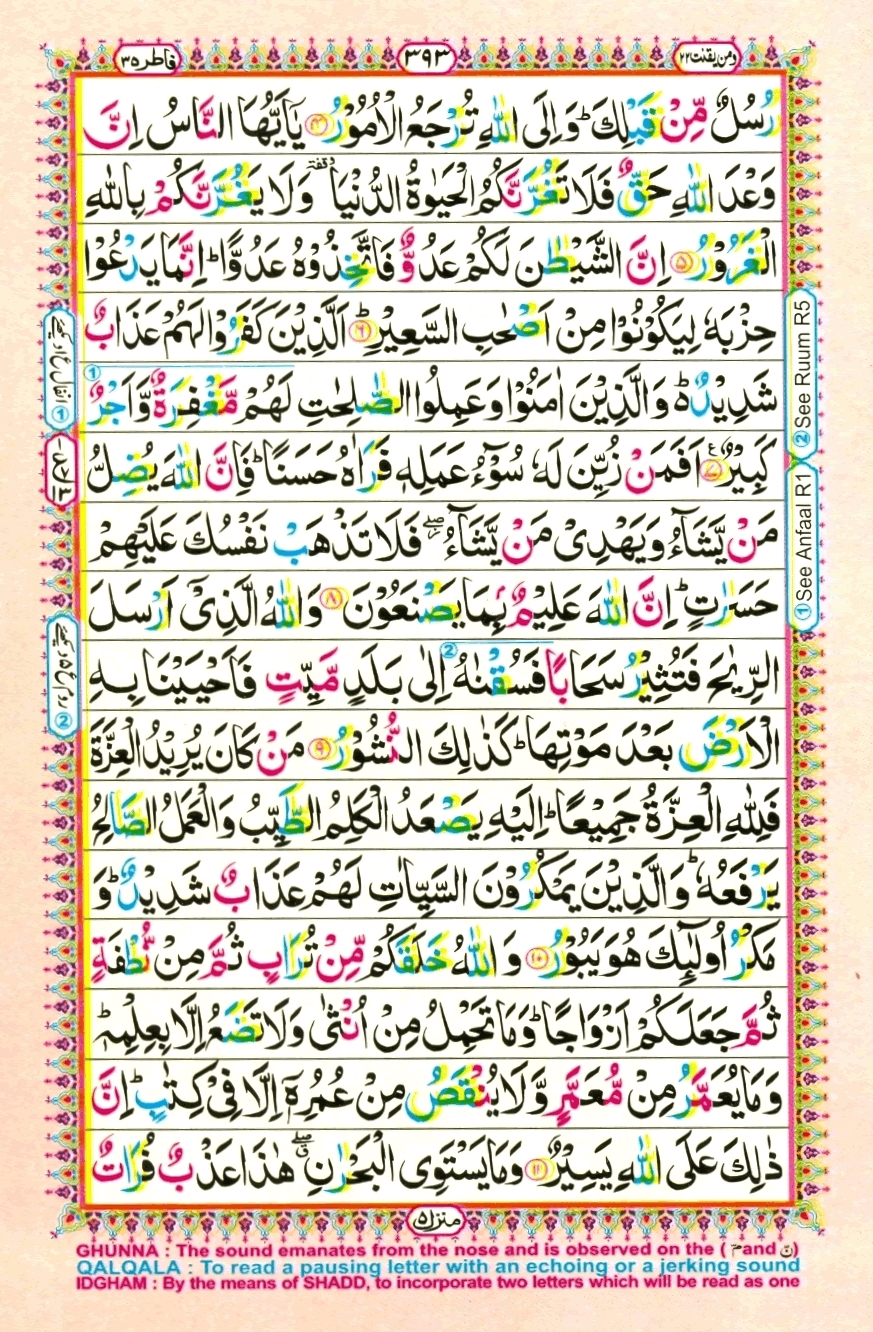 ومن یقنت ۲۲
۳۹۳
فاطر ۳۵
رُسُلٌ مِّنْ قَبْلِكَ ؕ وَاِلَی اللّٰهِ تُرْجَعُ الْاُمُوْرُ ﴿۴﴾ یٰۤاَیُّهَا النَّاسُ اِنَّ
وَعْدَ اللّٰهِ حَقٌّ فَلَا تَغُرَّنَّكُمُ الْحَیٰوةُ الدُّنْیَا ۥ وقفة وَلَا یَغُرَّنَّكُمْ بِاللّٰهِ
الْغَرُوْرُ ﴿۵﴾ اِنَّ الشَّیْطٰنَ لَكُمْ عَدُوٌّ فَاتَّخِذُوْهُ عَدُوًّا ؕ اِنَّمَا یَدْعُوْا
حِزْبَهٗ لِیَكُوْنُوْا مِنْ اَصْحٰبِ السَّعِیْرِ ﴿۶﴾ ؕ اَلَّذِیْنَ كَفَرُوْا لَهُمْ عَذَابٌ
شَدِیْدٌ ؕ۬ وَالَّذِیْنَ اٰمَنُوْا وَعَمِلُوا الصّٰلِحٰتِ لَهُمْ مَّغْفِرَةٌ وَّاَجْرٌ
كَبِیْرٌ ﴿۷﴾ ع اَفَمَنْ زُیِّنَ لَهٗ سُوْٓءُ عَمَلِهٖ فَرَاٰهُ حَسَنًا ؕ فَاِنَّ اللّٰهَ یُضِلُّ
مَنْ یَّشَآءُ وَیَهْدِیْ مَنْ یَّشَآءُ ۖؗ فَلَا تَذْهَبْ نَفْسُكَ عَلَیْهِمْ
حَسَرٰتٍ ؕ اِنَّ اللّٰهَ عَلِیْمٌۢ بِمَا یَصْنَعُوْنَ ﴿۸﴾ وَاللّٰهُ الَّذِیْۤ اَرْسَلَ
الرِّیٰحَ فَتُثِیْرُ سَحَابًا فَسُقْنٰهُ اِلٰی بَلَدٍ مَّیِّتٍ فَاَحْیَیْنَا بِهِ
الْاَرْضَ بَعْدَ مَوْتِهَا ؕ كَذٰلِكَ النُّشُوْرُ ﴿۹﴾ مَنْ كَانَ یُرِیْدُ الْعِزَّةَ
فَلِلّٰهِ الْعِزَّةُ جَمِیْعًا ؕ اِلَیْهِ یَصْعَدُ الْكَلِمُ الطَّیِّبُ وَالْعَمَلُ الصَّالِحُ
یَرْفَعُهٗ ؕ وَالَّذِیْنَ یَمْكُرُوْنَ السَّیِّاٰتِ لَهُمْ عَذَابٌ شَدِیْدٌ ؕ وَ
مَكْرُ اُولٰٓئِكَ هُوَ یَبُوْرُ ﴿۱۰﴾ وَاللّٰهُ خَلَقَكُمْ مِّنْ تُرَابٍ ثُمَّ مِنْ نُّطْفَةٍ
ثُمَّ جَعَلَكُمْ اَزْوَاجًا ؕ وَمَا تَحْمِلُ مِنْ اُنْثٰی وَلَا تَضَعُ اِلَّا بِعِلْمِهٖ ؕ
وَمَا یُعَمَّرُ مِنْ مُّعَمَّرٍ وَّلَا یُنْقَصُ مِنْ عُمُرِهٖۤ اِلَّا فِیْ كِتٰبٍ ؕ اِنَّ
ذٰلِكَ عَلَی اللّٰهِ یَسِیْرٌ ﴿۱۱﴾ وَمَا یَسْتَوِی الْبَحْرٰنِ ۖۗ هٰذَا عَذْبٌ فُرَاتٌ
① See Anfaal R1 ② See Ruum R5
منزل ۵
GHUNNA : The sound emanates from the nose and is observed on the ( مّ and نّ)
QALQALA : To read a pausing letter with an echoing or a jerking sound
IDGHAM : By the means of SHADD, to incorporate two letters which will be read as one